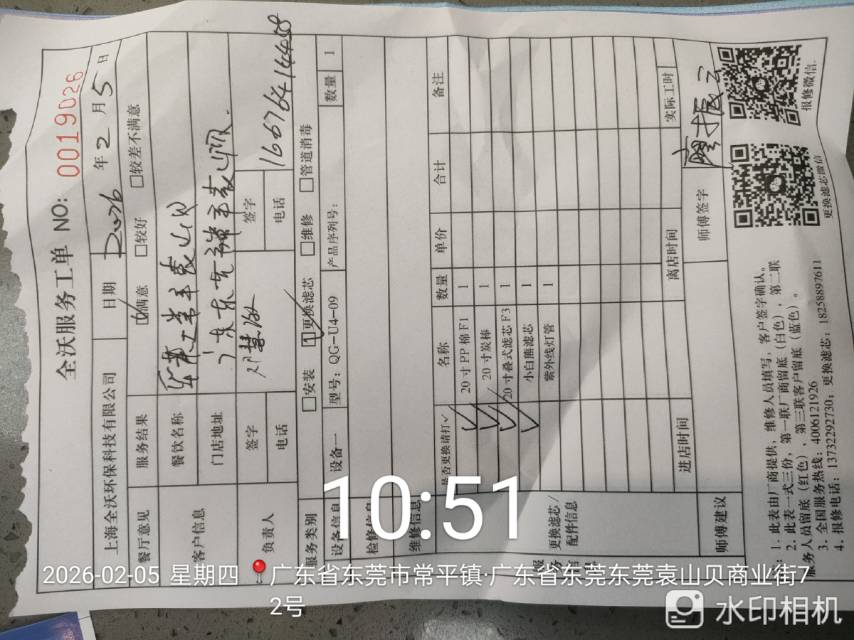 全沃服务工单 NO: 0019026
上海全沃环保科技有限公司 日期 2026 年 2 月 5 日
餐厅意见 服务结果 ☑满意 □较好 □较差不满意
客户信息 餐饮名称
门店地址 广东东莞
负责人 签字 签字
电话 电话 16676416458
服务类别 □安装 ☑更换滤芯 □维修 □管道消毒
设备信息 设备一 型号: QG-U4-09 产品序列号: 数量 1
检修信息
维修信息
更换滤芯/配件信息 是否更换请打✓ 名称 数量 单价 合计 备注
✓ 20寸PP棉F1 1
✓ 20寸炭棒 1
✓ 20寸叠式滤芯F3 1
✓ 小白熊滤芯 1
紫外线灯管 1
进店时间 离店时间 实际工时
师傅建议 师傅签字
1. 此表由厂商提供,维修人员填写,客户签字确认。
2. 此表一式三份,第一联厂商留底(白色),第二联
服务人员留底(红色),第三联客户留底(蓝色)。
3. 全国服务热线: 4006121926
4. 报修电话: 13732292730; 更换滤芯: 18258897611
更换滤芯微信
报修微信
10:51
2026-02-05 星期四 广东省东莞市常平镇·广东省东莞东莞袁山贝商业街7
2号
水印相机